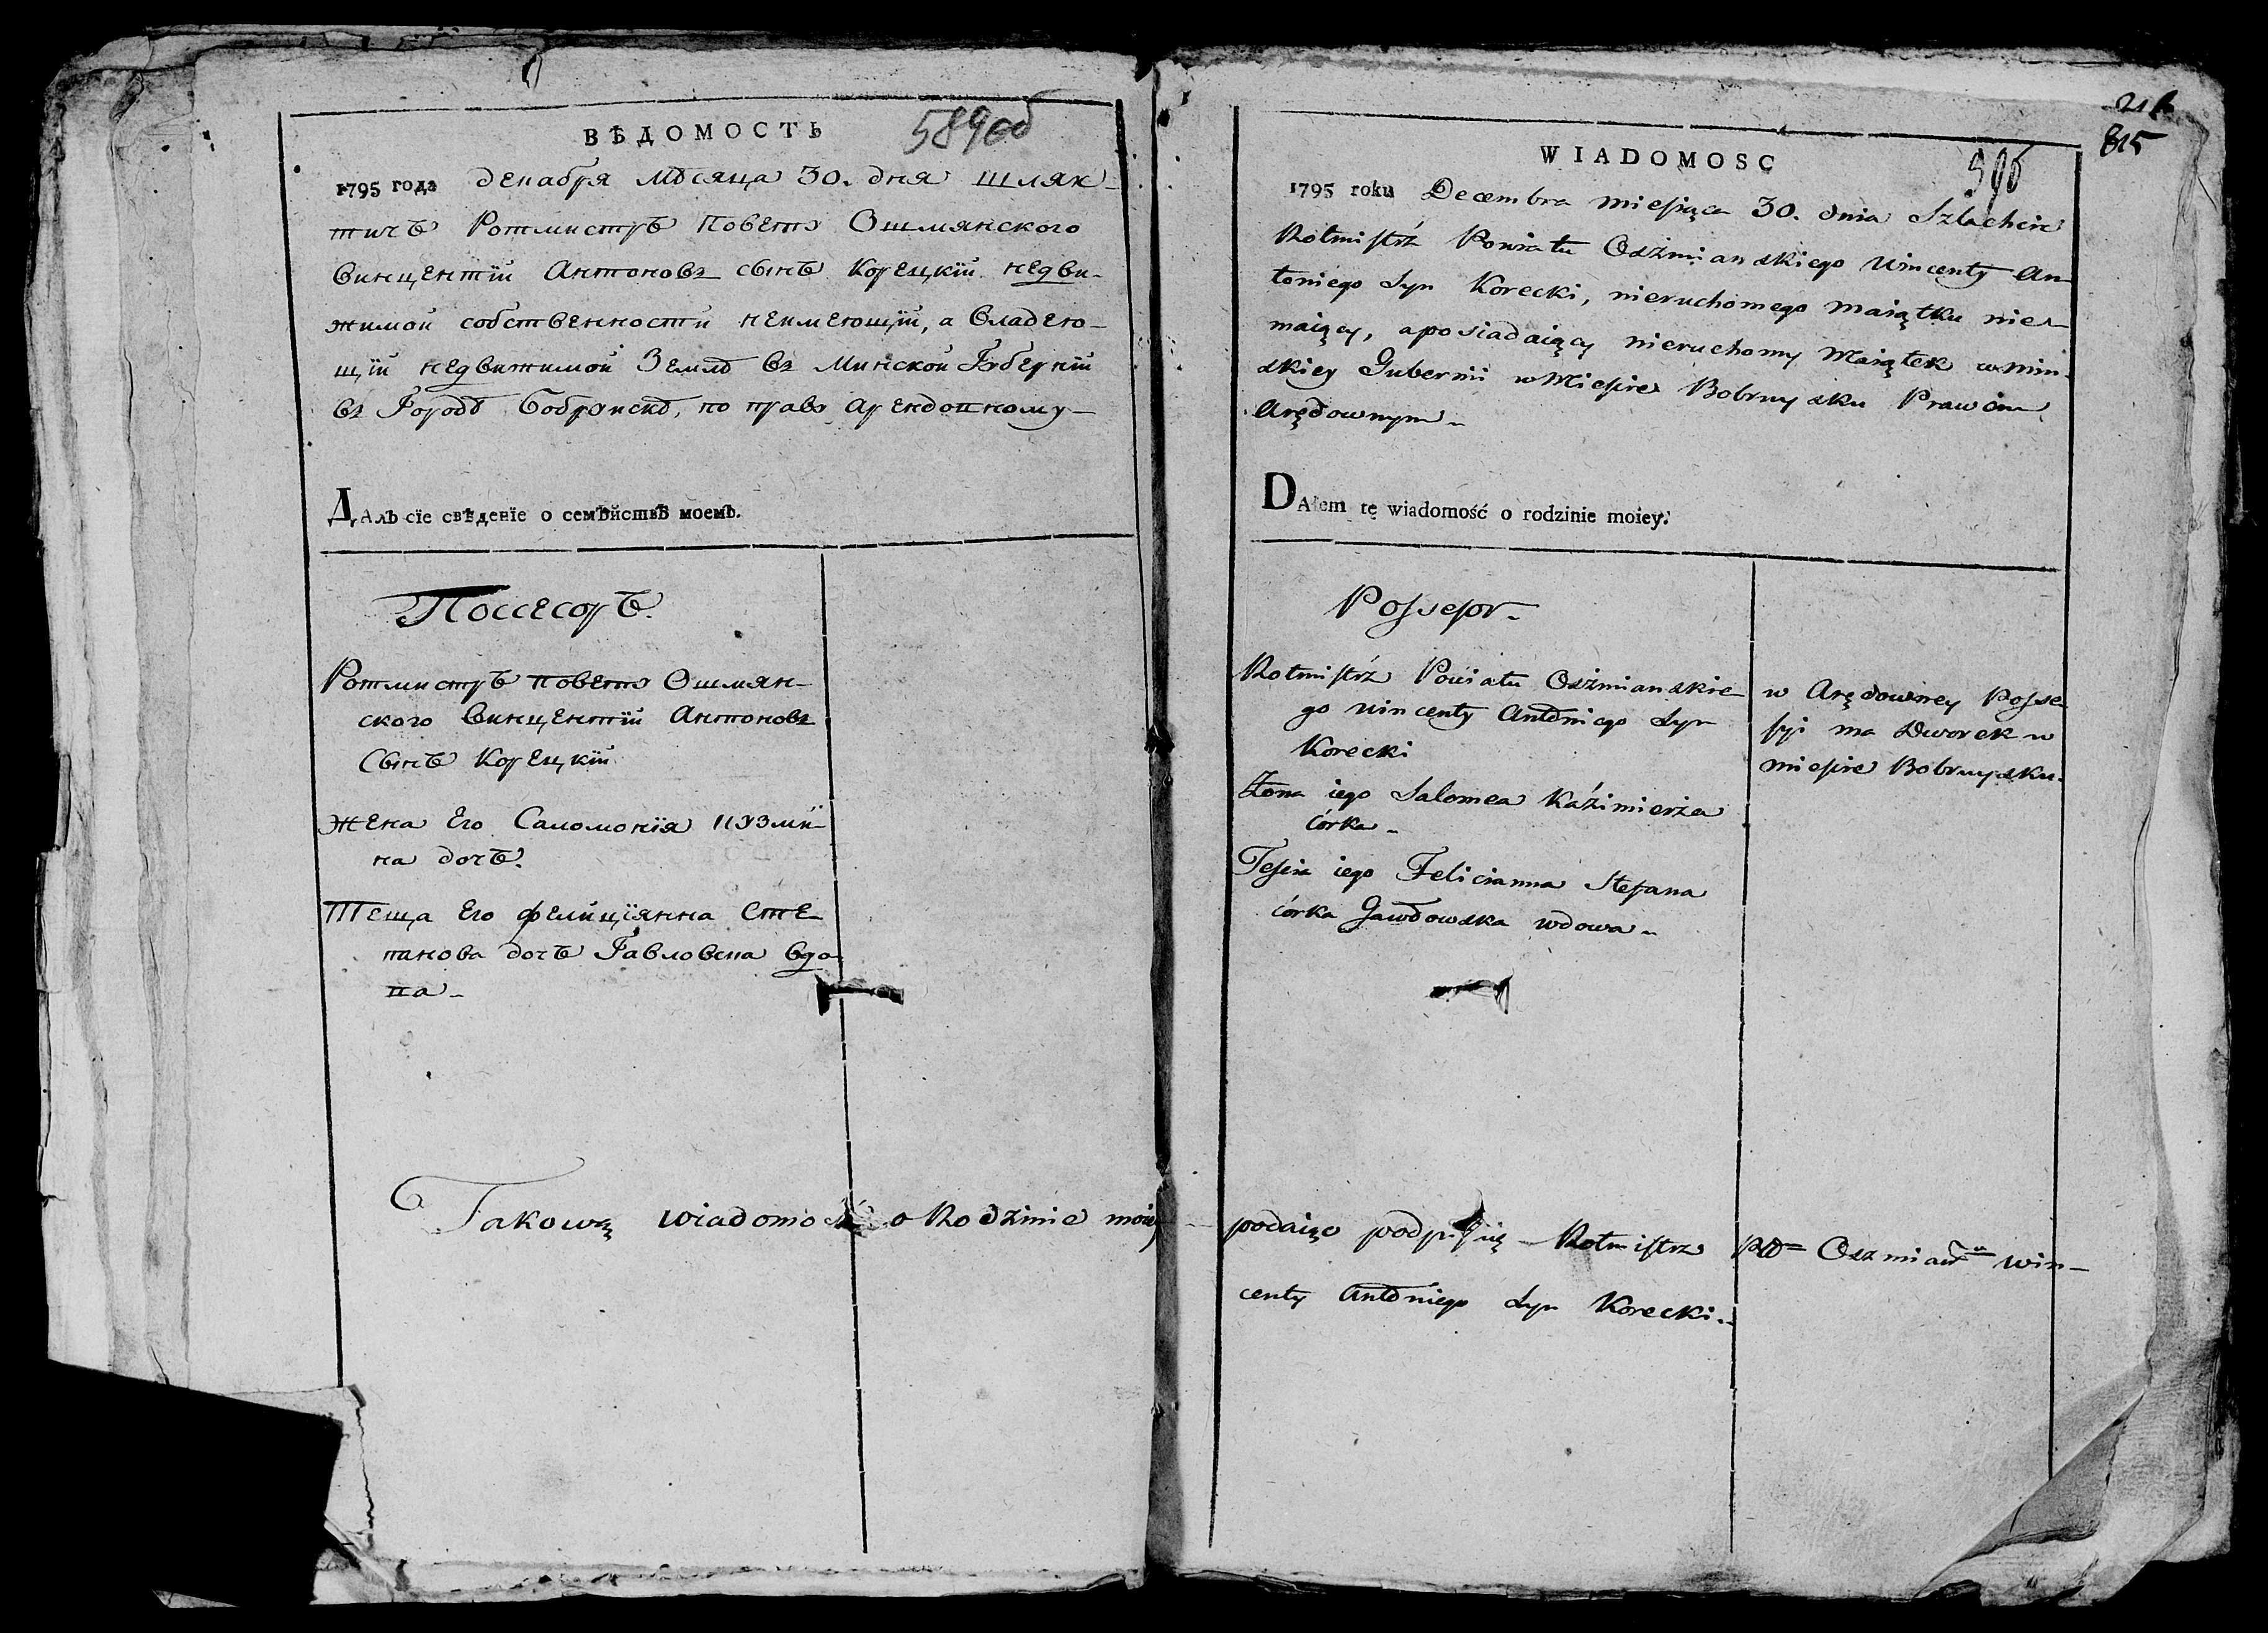 ВѢДОМОСТЬ
589об
1795 года декабря мѣсяца 30. дня шлях-
тичъ Ротмистръ Поветꙋ Ошмянского
Винцентїй Антоновъ сынъ Корецкїй недви-
жимой собственности неимеющїй, а владею-
щїй недвижимой Землѣ въ Минской Гꙋбернїй
въ Городѣ Бобрꙋискѣ, по правꙋ арендовному-
ДАлъ сїе свѣденїе о семѣйствѣ моемъ.
Поссесоръ.
Ротмистръ поветꙋ Ошмян-
ского Винцентїй Антоновъ
Сынъ Корецкїй
Жена Его Саломонїя
на дочъ.
Теща Его Фелицїянна Сте-
панова дочъ вдо-
ва-
Takową wiadomość o Rodzinie moiey
21
815
WIADOMOSC
590
1795 roku Decembra miesiąca 30. dnia Szlachcic
Rotmistrz Powiatu Oszmianskiego Wincenty An-
toniego Syn Korecki, nieruchomego maiątku nie-
maiący, a posiadaiący nieruchomy Maiątek w Min-
skiey Gubernii w Miescie Bobruysku Prawem
Arędownym-
DAłem tę wiadomość o rodzinie moiey.
Possesor-
Rotmistrz Powiatu Oszmianskie-
go Wincenty Antoniego Syn
Korecki
Żona iego Salomea Kaźimierza
córka-
Teścia iego Felicianna Stefana
córka Gawdowska wdowa-
w Arędowney Posse-
syi ma Dworek w
miescie Bobruysku.
podaiąc podpisuię Rotmistrz Win-
centy Antoniego Syn Korecki..